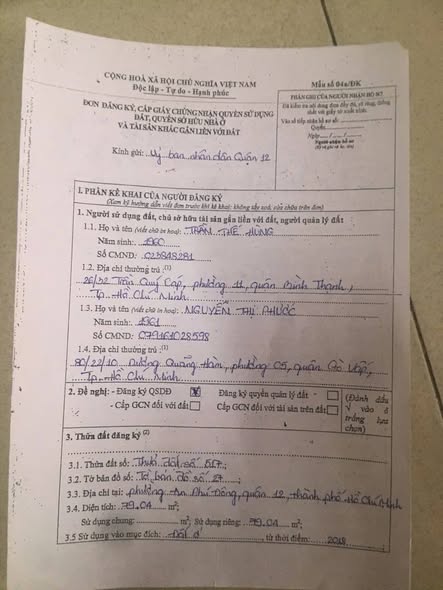 CỘNG HOÀ XÃ HỘI CHỦ NGHĨA VIỆT NAM
Độc lập - Tự do - Hạnh phúc
Mẫu số 04a/ĐK
PHẦN GHI CỦA NGƯỜI NHẬN HỒ SƠ
Đã kiểm tra nội dung đơn đầy đủ, rõ ràng, thống
nhất với giấy tờ xuất trình.
Vào sổ tiếp nhận hồ sơ số:
Quyển
Ngày / /
Người nhận hồ sơ
(Ký và ghi rõ họ, tên)
ĐƠN ĐĂNG KÝ, CẤP GIẤY CHỨNG NHẬN QUYỀN SỬ DỤNG
ĐẤT, QUYỀN SỞ HỮU NHÀ Ở
VÀ TÀI SẢN KHÁC GẮN LIỀN VỚI ĐẤT
Kính gửi: Uỷ ban nhân dân Quận 12
I. PHẦN KÊ KHAI CỦA NGƯỜI ĐĂNG KÝ
(Xem kỹ hướng dẫn viết đơn trước khi kê khai; không tẩy xoá, sửa chữa trên đơn)
1. Người sử dụng đất, chủ sở hữu tài sản gắn liền với đất, người quản lý đất
1.1. Họ và tên (viết chữ in hoa): TRẦN THẾ HÙNG
Năm sinh: 1960
Số CMND: 023848281
1.2. Địa chỉ thường trú :(1)
26/32 Trần Quý Cáp, phường 11, quận Bình Thạnh,
Tp. Hồ Chí Minh
1.3. Họ và tên (viết chữ in hoa): NGUYỄN THỊ PHƯỚC
Năm sinh: 1961
Số CMND: 079161028598
1.4. Địa chỉ thường trú :(1)
80/22/10 Dương Quảng Hàm, phường 05, quận Gò Vấp,
Tp. Hồ Chí Minh
2. Đề nghị: - Đăng ký QSDĐ Đăng ký quyền quản lý đất - (Đánh dấu
- Cấp GCN đối với đất Cấp GCN đối với tài sản trên đất √ vào ô
trống lựa
chọn)
3. Thửa đất đăng ký (2)
3.1. Thửa đất số: Thửa đất số 517;
3.2. Tờ bản đồ số: Tờ bản đồ số 27;
3.3. Địa chỉ tại: phường An Phú Đông, quận 12, thành phố Hồ Chí Minh
3.4. Diện tích: 79.04 m²;
Sử dụng chung: m²; Sử dụng riêng: 79.04 m²;
3.5 Sử dụng vào mục đích: Đất ở, từ thời điểm: 2018